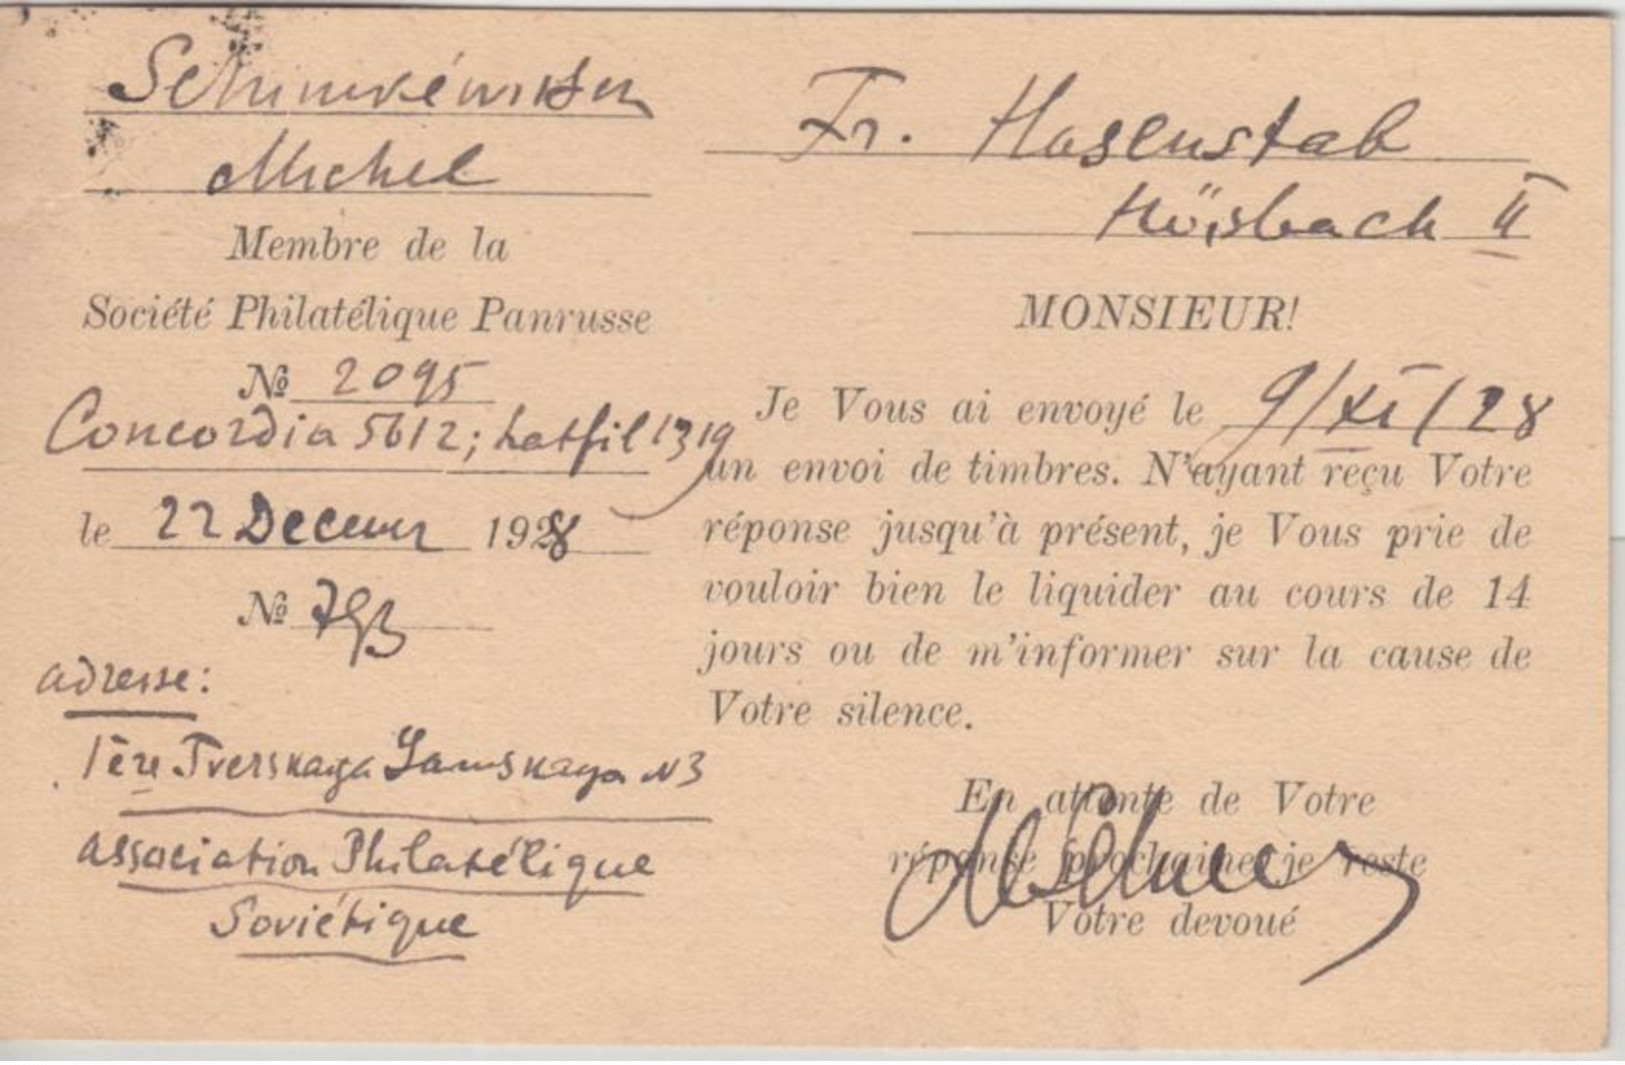 Michel
Membre de la
Société Philatélique Panrusse
№ 2095
Concordia 5612; hatfil 1319
le 22 Decem 1928
№
adresse:
1ère Tverskaya Yamskaya N3
Association Philatélique
Soviétique
Fr. Hasenstab
Hösbach II
MONSIEUR!
Je Vous ai envoyé le 9/XI/28
un envoi de timbres. N'ayant reçu Votre
réponse jusqu'à présent, je Vous prie de
vouloir bien le liquider au cours de 14
jours ou de m'informer sur la cause de
Votre silence.
En attente de Votre
réponse prochaine je reste
Votre devoué